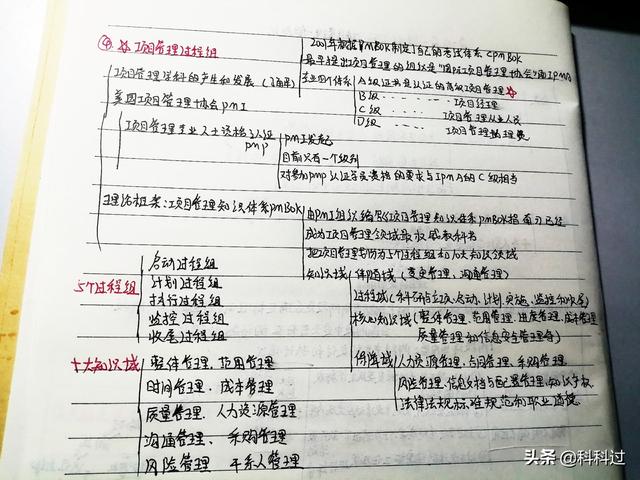 ④ ☆项目管理过程组
2001年根据PMBOK制定了自己的考试体系CPMBOK
最早提出项目管理的组织是"国际项目管理协会"简IPMA
项目管理学科的产生和发展（了解）
专业四个体系
A级证书是认证的高级项目管理☆
美国项目管理协会PMI
B级 项目经理
C级 项目管理从业人员
D级 项目管理
项目管理专业人士资格认证
PMP
PMI发起
目前只有一个级别
对参加PMP认证学员资格的要求与IPMA的C级相当
理论框架：项目管理知识体系PMBOK
由PMI组织编写《项目管理知识体系PMBOK指南》已经
成为项目管理领域最权威教科书
把项目管理划分为5个过程组和10大知识领域
5个过程组
启动过程组
计划过程组
执行过程组
监控过程组
收尾过程组
知识域
伴随域（变更管理、沟通管理）
过程域（科研与立项、启动、计划、实施、监控和收尾）
核心知识域（整体管理、范围管理、进度管理、成本管理
质量管理和信息安全管理等）
保障域
人力资源管理、合同管理、采购管理
风险管理、信息文档与配置管理、知识产权
法律法规标准规范和职业道德
十大知识域
整体管理、范围管理
时间管理、成本管理
质量管理、人力资源管理
沟通管理、采购管理
风险管理 干系人管理
头条 @科科过